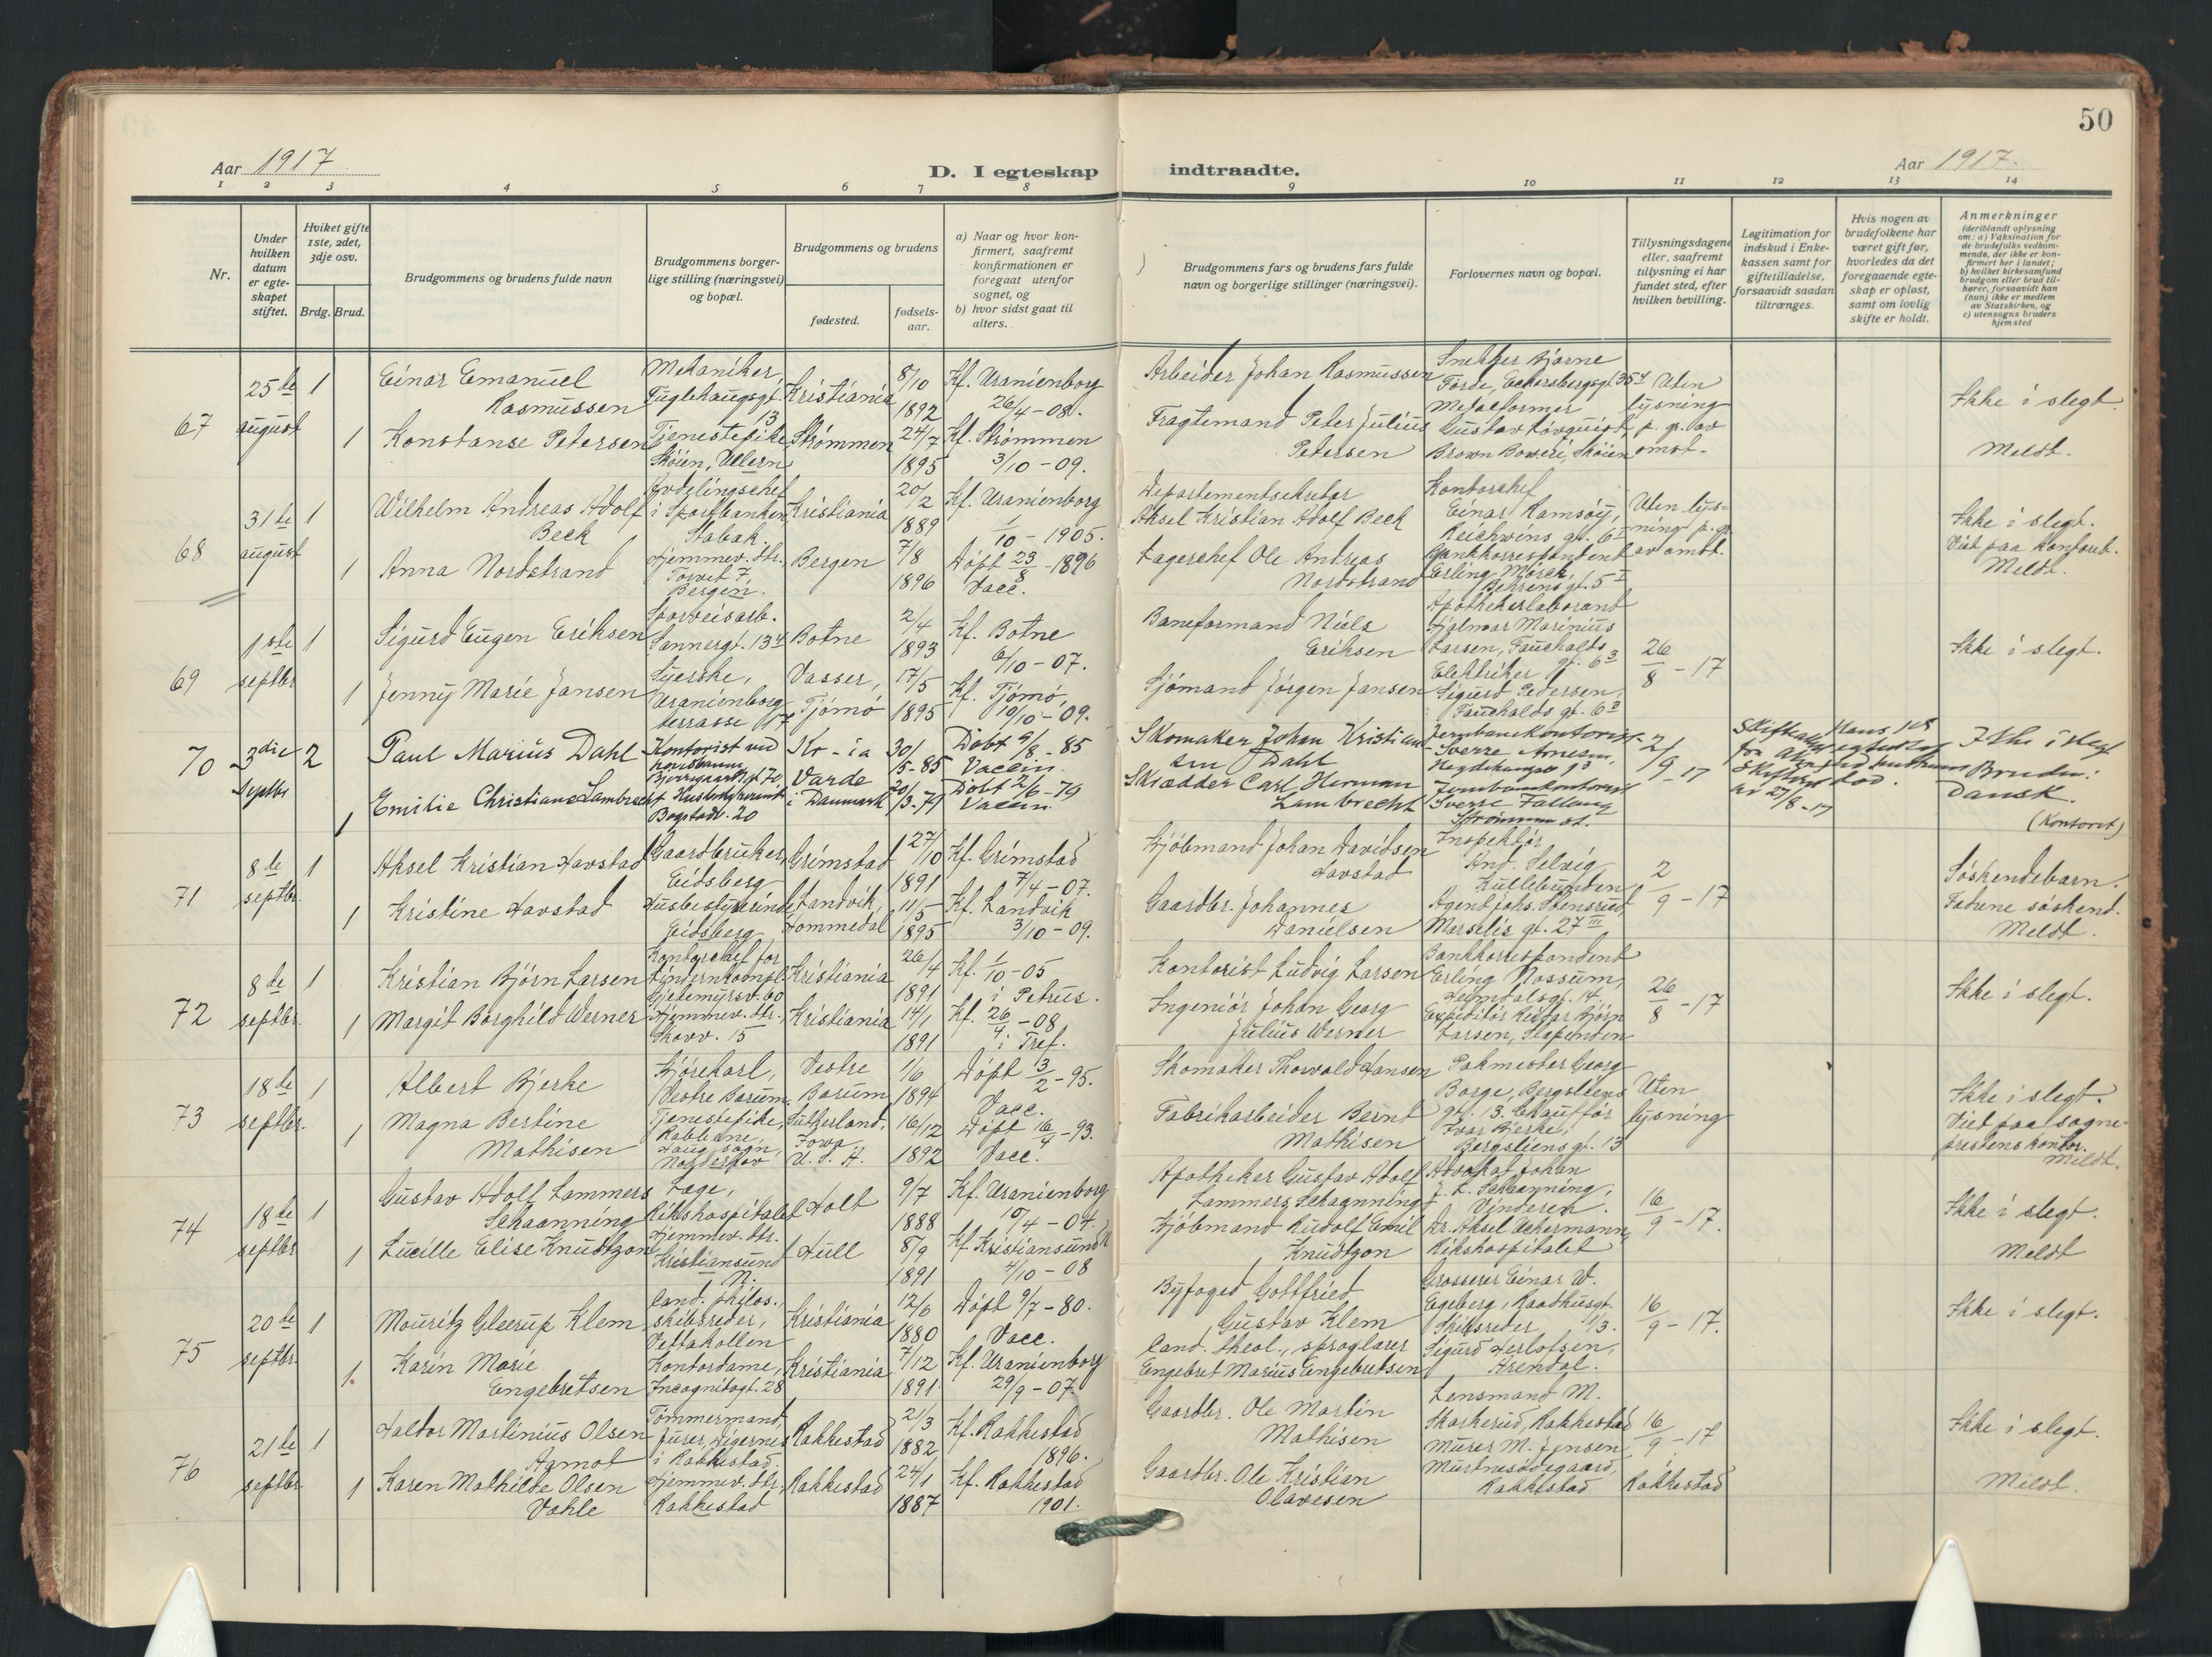 50
Aar 1917
D. I egteskap indtraadte.
Aar 1917.
1 2 3 4 5 6 7 8 9 10 11 12 13 14
Nr.
Under hvilken datum er egteskapet stiftet.
Hviket gifte 1ste, 2det, 3dje osv.
Brdg. Brud.
Brudgommens og brudens fulde navn
Brudgommens borgerlige stilling (næringsvei) og bopæl.
Brudgommens og brudens
fødested.
fødselsaar.
a) Naar og hvor konfirmert, saafremt konfirmationen er foregaat utenfor sognet, og
b) hvor sidst gaat til alters.
Brudgommens fars og brudens fars fulde navn og borgerlige stillinger (næringsvei).
Forlovernes navn og bopæl.
Tillysningsdagene eller, saafremt tillysning ei har fundet sted, efter hvilken bevilling.
Legitimation for indskud i Enkekassen samt for giftetilladelse, forsaavidt saadan tiltrænges.
Hvis nogen av brudefolkene har været gift før, hvorledes da det foregaaende egteskap er opløst, samt om lovlig skifte er holdt.
Anmerkninger (deriblandt oplysning om: a) Vaksination for de brudefolks vedkommende, der ikke er konfirmert her i landet; b) hvilket kirkesamfund brudgom eller brud tilhører, forsaavidt han (hun) ikke er medlem av Statskirken, og c) utensogns bruders hjemsted
67
25de august
1
Einar Emanuel Rasmussen
Mekaniker, Fuglehaugsgt. 13
Kristiania
8/10 1892
Kf. Uranienborg 26/4 - 08.
Arbeider Johan Rasmussen
Snekker Bjarne Førde, Eckersbergsgt. 35
Uten lysning p. gr. av omst.
Ikke i slegt.
1
Konstanse Petersen
Tjenestepike Skøien, Ullern
Strømmen
24/7 1895
Kf. Strømmen 3/10 - 09.
Fragtemand Peter Julius Petersen
Metalformer Gustav Løvquist, Brown Boweri, Skøien
Meldt.
68
31te august
1
Wilhelm Andreas Adolf Beck
Avdelingschef i Sportbanken Stabæk.
Kristiania
20/2 1889
Kf. Uranienborg 1/10 - 1905.
Departementsekretær Aksel Kristian Adolf Beck
Kontorchef Einar Ramsøy, Reichwins gt. 6
Uten lysning p. gr. av omst.
Ikke i slegt.
Viet paa kontoret.
Meldt.
1
Anna Nordstrand
Hjemmev. dtr. Torvet 7, Bergen.
Bergen
7/8 1896
Døpt 23/8 - 1896 Vacc.
Lagerchef Ole Andreas Nordstrand
Bankkorrespondent Erling Mørch, Behrens gt. 5
69
1ste septbr
1
Sigurd Eugen Eriksen
Sporveisarb. Sannergt. 13
Botne
2/4 1893
Kf. Botne 6/10 - 07.
Baneformand Niels Eriksen
Apothekerlaborant Hjalmar Marinius Larsen, Fauchalds gt. 6
26/8 - 17
Ikke i slegt.
1
Jenny Marie Jansen
Syerske, Uranienborg terrasse 17
Vasser, Tjømø
17/5 1895
Kf. Tjømø, 10/10 - 09.
Sjømand Jørgen Jansen
Elektriker Sigurd Pedersen, Fauchalds gt. 6
70
3die septbr
2
Paul Marius Dahl
Kontorist ved
Kr-ia
30/5-85
Døbt 9/8 - 85 Vaccin.
Skomaker Johan Kristiansen Dahl
Jernbanekontorist Sverre Arnesen, Hegdehaugsv.
2/9 - 17
Skifteatt.
Ikke i slegt
1
Emilie Christiane Lambrecht
Husbestyrerinde Bogstadv. 20
Varde i Danmark
20/3-79
Døbt 2/6 - 79 Vaccin
Skrædder Carl Herman Lambrecht
Jernbanekontorist Sverre Fallang Strømmen st.
av 27/8 - 17
Bruden: Dansk.
(Kontoret)
71
8de septbr.
1
Aksel Kristian Havstad
Gaardbruker, Eidsberg
Grimstad
27/10 1891
Kf. Grimstad 7/4 - 07.
Kjøbmand Johan Davidsen Havstad
Inspektør And. Selvig Kullebunden
2/9 - 17
Søskendebarn.
Fædrene søskend.
Meldt.
1
Kristine Havstad
Husbestyrerinde Eidsberg
Landvik, Hommedal
11/5 1895
Kf. Landvik 3/10 - 09.
Gaardbr. Johannes Danielsen
Agent Johs. Stensrud Marselis gt. 27 III
72
8de septbr.
1
Kristian Bjørn Larsen
Kontorchef for Gjetemyrsv. 60
Kristiania
26/4 1891
Kf. 1/10 - 05 i Petrus.
Kontorist Ludvig Larsen
Bankkorrespondent Erling Mossum, Heimdalsgt. 14.
26/8 - 17
Ikke i slegt.
1
Margit Borghild Werner
Hjemmev. dtr., Skovv. 15
Kristiania
14/1 1891
Kf. 26/4 - 08 i Tref.
Ingeniør Johan Georg Julius Werner
Expeditør Reidar Bjørn Larsen, Slependen
73
18de septbr.
1
Albert Bjerke
Kjørekarl, Vestre Bærum.
Vestre Bærum
1/6 1894
Døpt 3/2 - 95. Vacc.
Skomaker Thorvald Hansen
Pakmester Georg Borge, Bergsliens gt. 13.
Uten lysning
Ikke i slegt.
Viet paa sogneprestens kontor.
Meldt.
1
Magna Bertine Mathisen
Tjenestepike, Haug sogn, Norderhov
Sutherland, Iowa U. S. A.
16/12 1892
Døpt 16/4 - 93. Vacc.
Fabrikarbeider Bernt Mathisen
Chauffør Ivar Bjerke, Bergsliens gt. 13
74
18de septbr
1
Gustav Adolf Lammers Schaanning
Læge, Rikshospitalet
Holt
9/7 1888
Kf. Uranienborg 10/4 - 04.
Apotheker Gustav Adolf Lammers Schaanning
Advokat Johan J. L. Schaanning, Vinderen.
16/9 - 17.
Ikke i slegt.
1
Lucille Elise Knudtzon
Hjemmev. dtr. Kristiansund N.
Hull
8/9 1891
Kf. Kristiansund N 4/10 - 08
Kjøbmand Rudolf Emil Knudtzon
Dr. Aksel Ackermann, Rikshospitalet
Meldt
75
20de septbr.
1
Mouritz Gleerup Klem
Cand. philos., skibsreder, Vettakollen
Kristiania
12/6 1880
Døpt 9/7 - 80. Vacc.
Byfoged Gottfried Gustav Klem
Grosserer Einar W. Egeberg, Raadhusgt. 13.
16/9 - 17.
Ikke i slegt.
1.
Karin Marie Engebretsen
Kontordame, Incognitogt. 28
Kristiania
7/12 1891
Kf. Uranienborg 29/9 - 07.
Cand. theol., sproglærer Engebret Marius Engebretsen
Skibsreder Sigurd Herlofsen, Arendal.
76
21de septbr
1
Haldor Martinius Olsen Aamot
Tømmermand, Digernes i Rakkestad.
Rakkestad
21/3 1882
Kf. Rakkestad 1896.
Gaardbr. Ole Martin Mathisen
Lensmand M. Skarkerud, Rakkestad
16/9 - 17
Rakkestad
Ikke i slegt.
1
Karen Mathilde Olsen Vahle
Hjemmev. dtr., Rakkestad
Rakkestad
24/1 1887
Kf. Rakkestad 1901.
Gaardbr. Ole Kristian Olavesen
Murer M. Jensen, Rakkestad
Meldt.